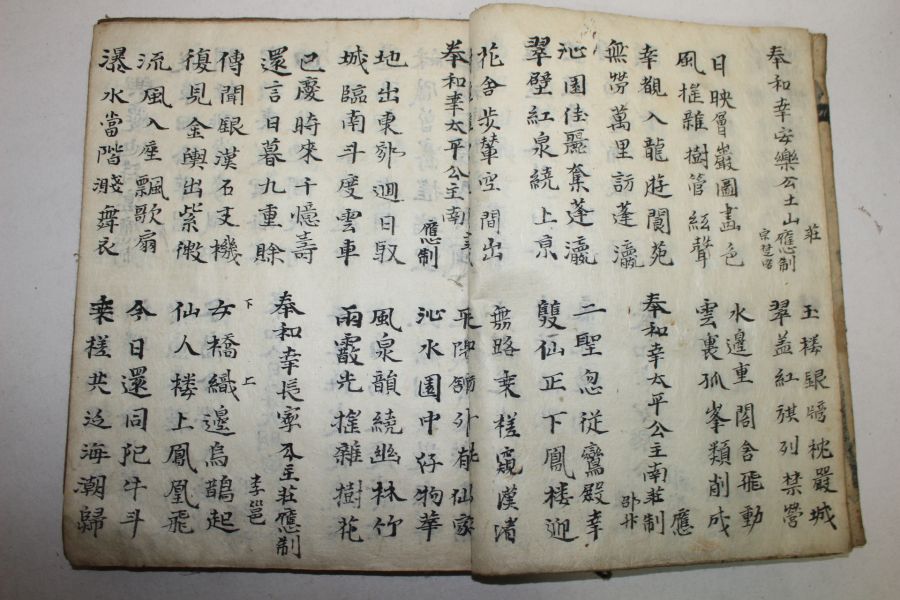 奉和幸安樂公主山莊應制
宗楚客
玉樓銀牓枕嚴城
翠盖紅旗列禁營
日映層巖圖畵色
風搖雜樹管絃聲
水邊重閣含飛動
雲裏孤峯類削成
幸覩八龍遊閬苑
無勞萬里訪蓬瀛
奉和幸太平公主南莊應制
邵升
沁園佳麗奪蓬瀛
翠壁紅泉繞上京
二聖忽從鸞殿幸
雙仙正下鳳樓迎
花含步輦空間出
無路乘槎窺漢渚
奉和幸太平公主南
應制
平陽館外有仙家
沁水園中好物華
地出東郊迴日馭
城臨南斗度雲車
風泉韻繞幽林竹
雨霰光搖雜樹花
已慶時來千憶壽
還言日暮九重賖
奉和幸長寧公主莊應制
李邕
傳聞銀漢石支機
復見金輿出紫微
女橋織邊烏鵲起
下 上
仙人樓上鳳凰飛
流風入座飄歌扇
瀑水當階濺舞衣
今日還同犯牛斗
乘槎共泛海潮歸